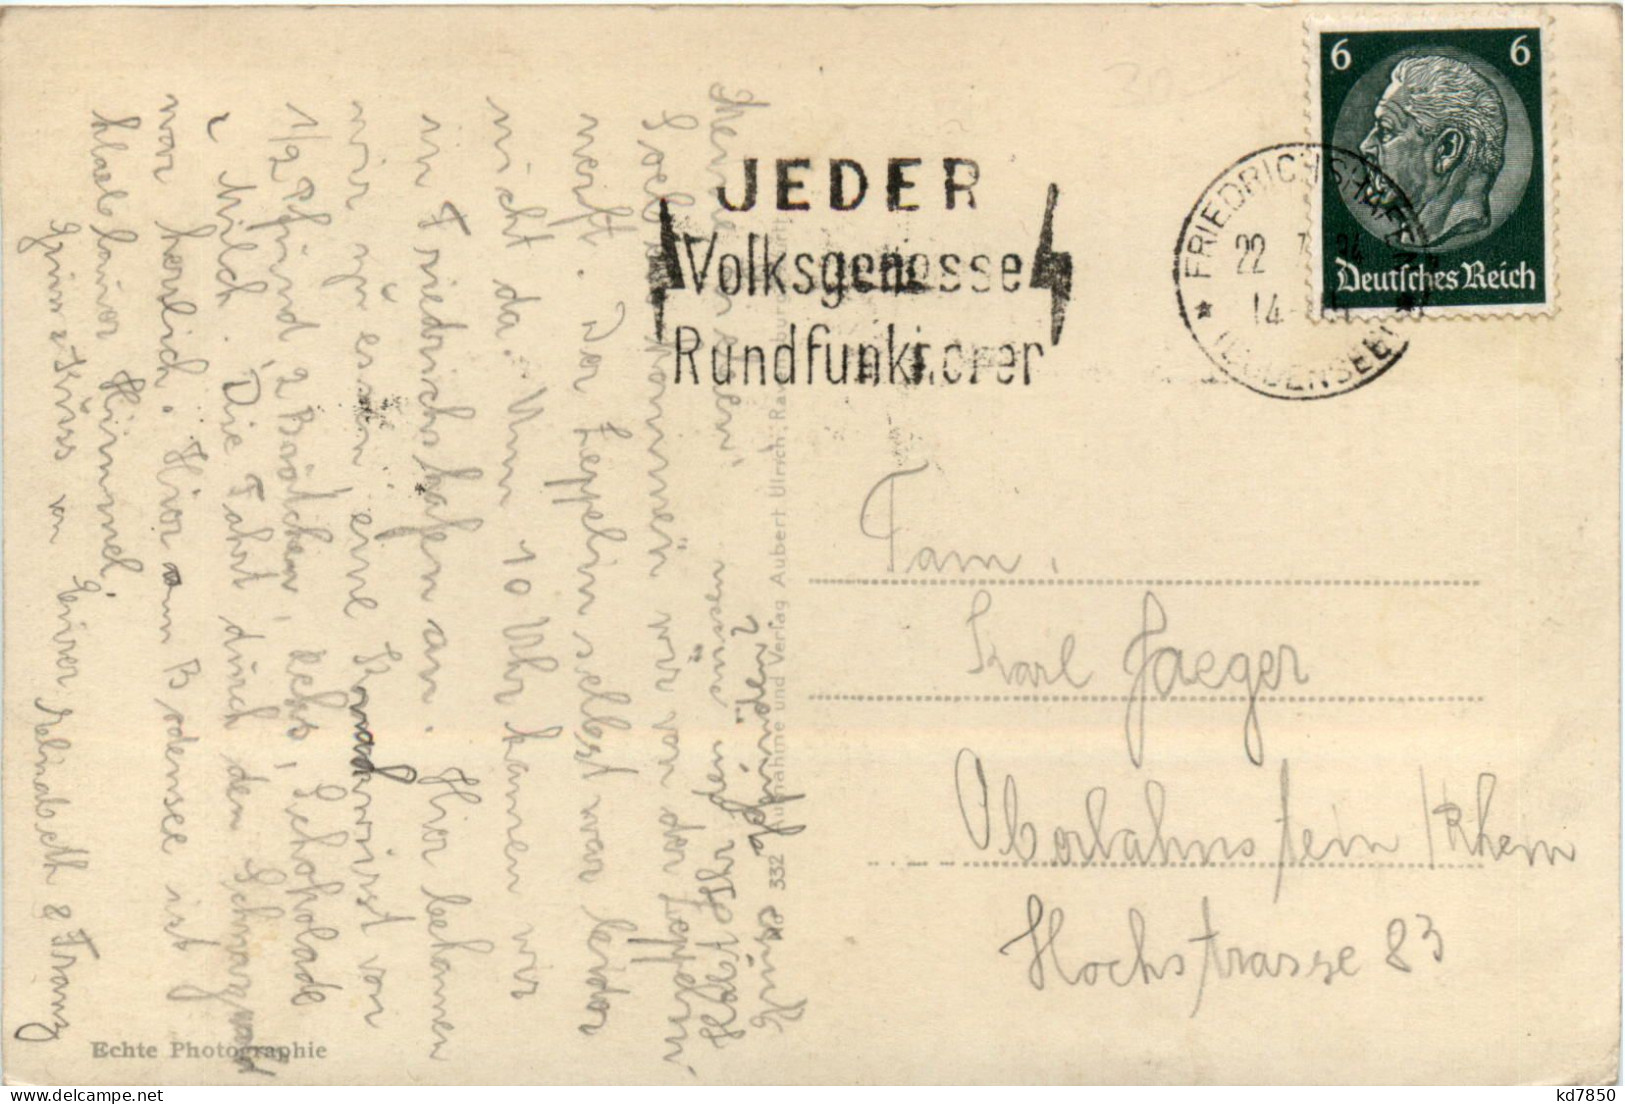 6 6
Deutsches Reich
FRIEDRICHSHAFEN
22. 7. 34
14-
JEDER
Volksgenosse
Rundfunkhörer
Fam.
Karl Jaeger
Oberlahnstein / Rhein
Hochstrasse 83
Meine Lieben!
Soeben kommen wir von der Zeppelin
werft. Der Zeppelin selbst war leider
nicht da. Um 10 Uhr kamen wir
in Friedrichshafen an. Hier bekamen
wir zu essen eine Knackwurst von
1/2 Pfund, 2 Brötchen, Keks, Schokolade
u. Milch. Die Fahrt durch den Schwarzwald
war herrlich. Hier am Bodensee ist
blauer Himmel.
Gruss u. Kuss von Eurer Elisabeth & Franz
Habt Ihr den
gefunden?
No 332 Aufnahme und Verlag Aubert Ulrich, Ravensburg
Echte Photographie
kd7850